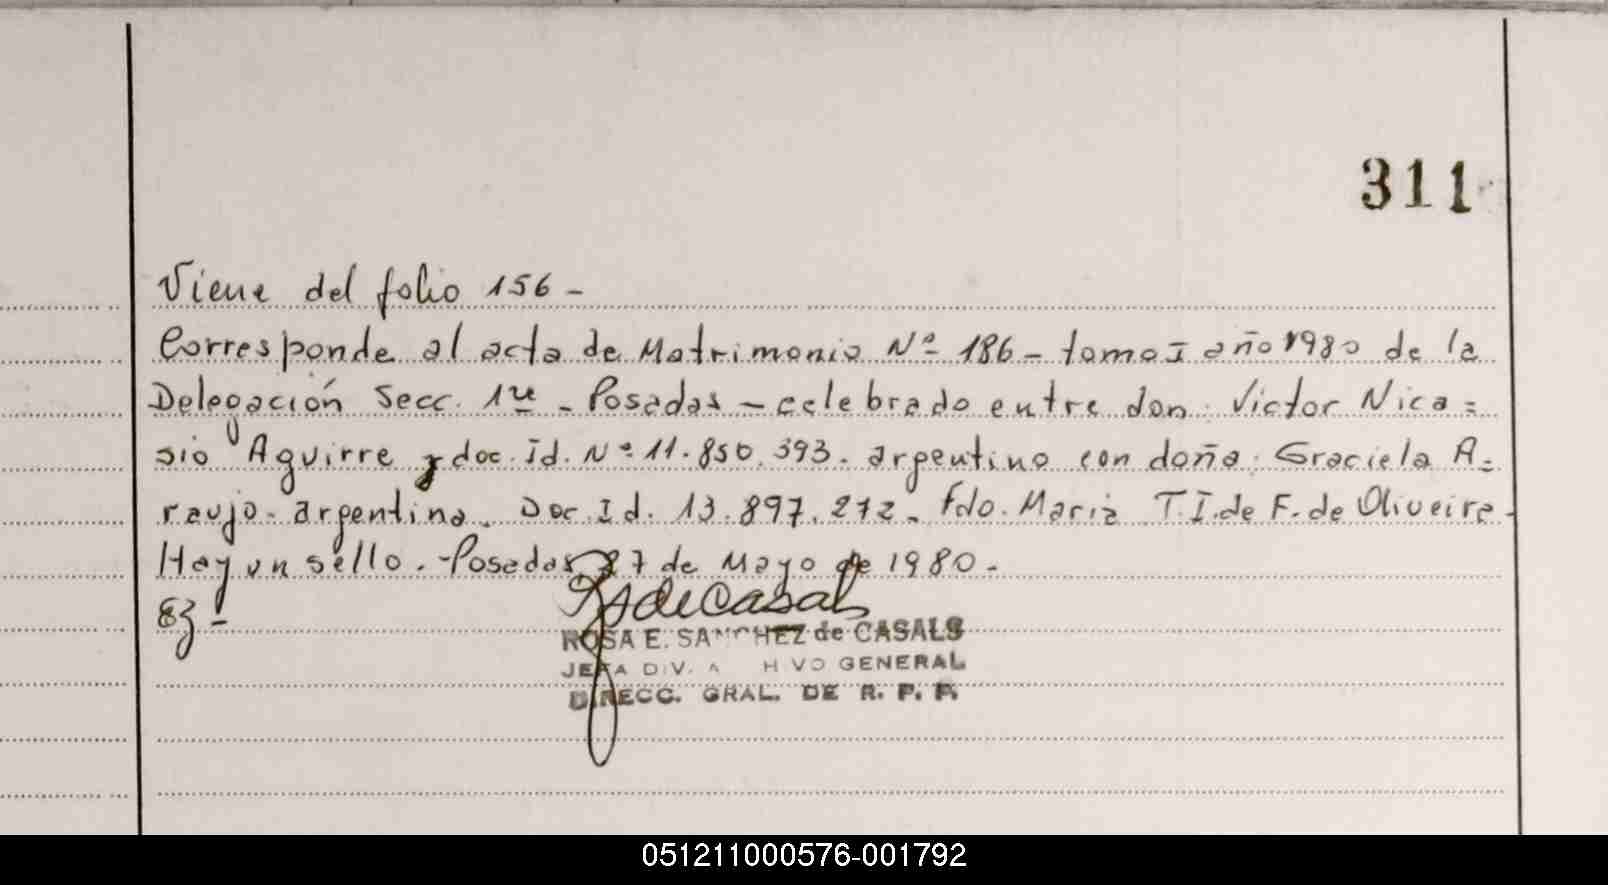 311
Viene del folio 156 -
Corresponde al acta de Matrimonio Nº 186 - tomo I año 1980 de la
Delegación Secc. 1ra - Posadas - celebrado entre don: Victor Nica=
sio Aguirre doc. Id. Nº 11.850.393. argentino con doña: Graciela A=
raujo - argentina. Doc. Id. 13.897.272. Fdo. Maria T. I. de F. de Oliveira -
Hay un sello. - Posadas 27 de Mayo de 1980. -
ROSA E. SANCHEZ de CASALS
JEFA DIV. A HIVO GENERAL
DIRECC. GRAL. DE R. P. P.
051211000576-001792